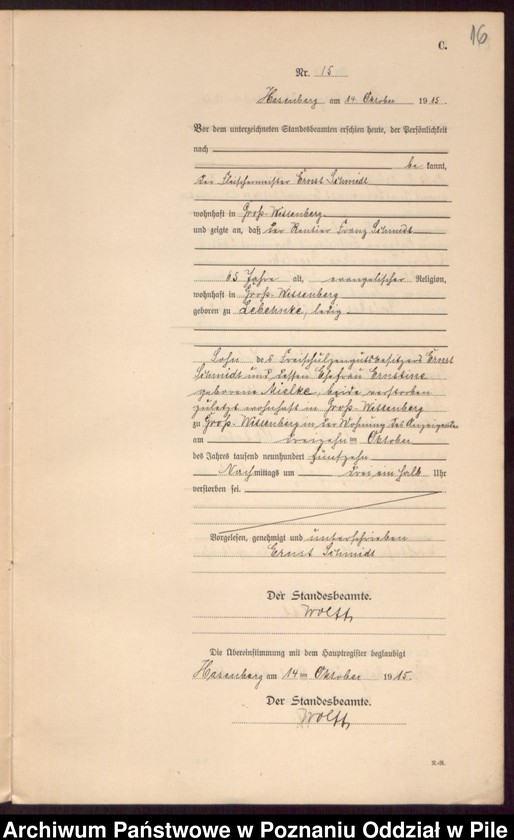 16
C.
Nr. 15
Hasenberg am 14 Oktober 1915.
Vor dem unterzeichneten Standesbeamten erschien heute, der Persönlichkeit
nach
be kannt,
der Fleischermeister Ernst Schmidt
wohnhaft in Groß-Wittenberg
und zeigte an, daß der Rentier Franz Schmidt
65 Jahre alt, evangelischer Religion,
wohnhaft in Groß-Wittenberg
geboren zu Lebehnke, ledig
Sohn des Freischulzengutsbesitzers Ernst
Schmidt und dessen Ehefrau Ernstine
geborene Mielke, beide verstorben
zuletzt wohnhaft in Groß-Wittenberg
zu Groß-Wittenberg in der Wohnung des Anzeigenden
am dreizehnten Oktober
des Jahres tausend neunhundert fünfzehn
Nachmittags um drei ein halb Uhr
verstorben sei.
Vorgelesen, genehmigt und unterschrieben
Ernst Schmidt
Der Standesbeamte.
Wolff
Die Übereinstimmung mit dem Hauptregister beglaubigt
Hasenberg am 14ten Oktober 1915.
Der Standesbeamte.
Wolff
Archiwum Państwowe w Poznaniu Oddział w Pile